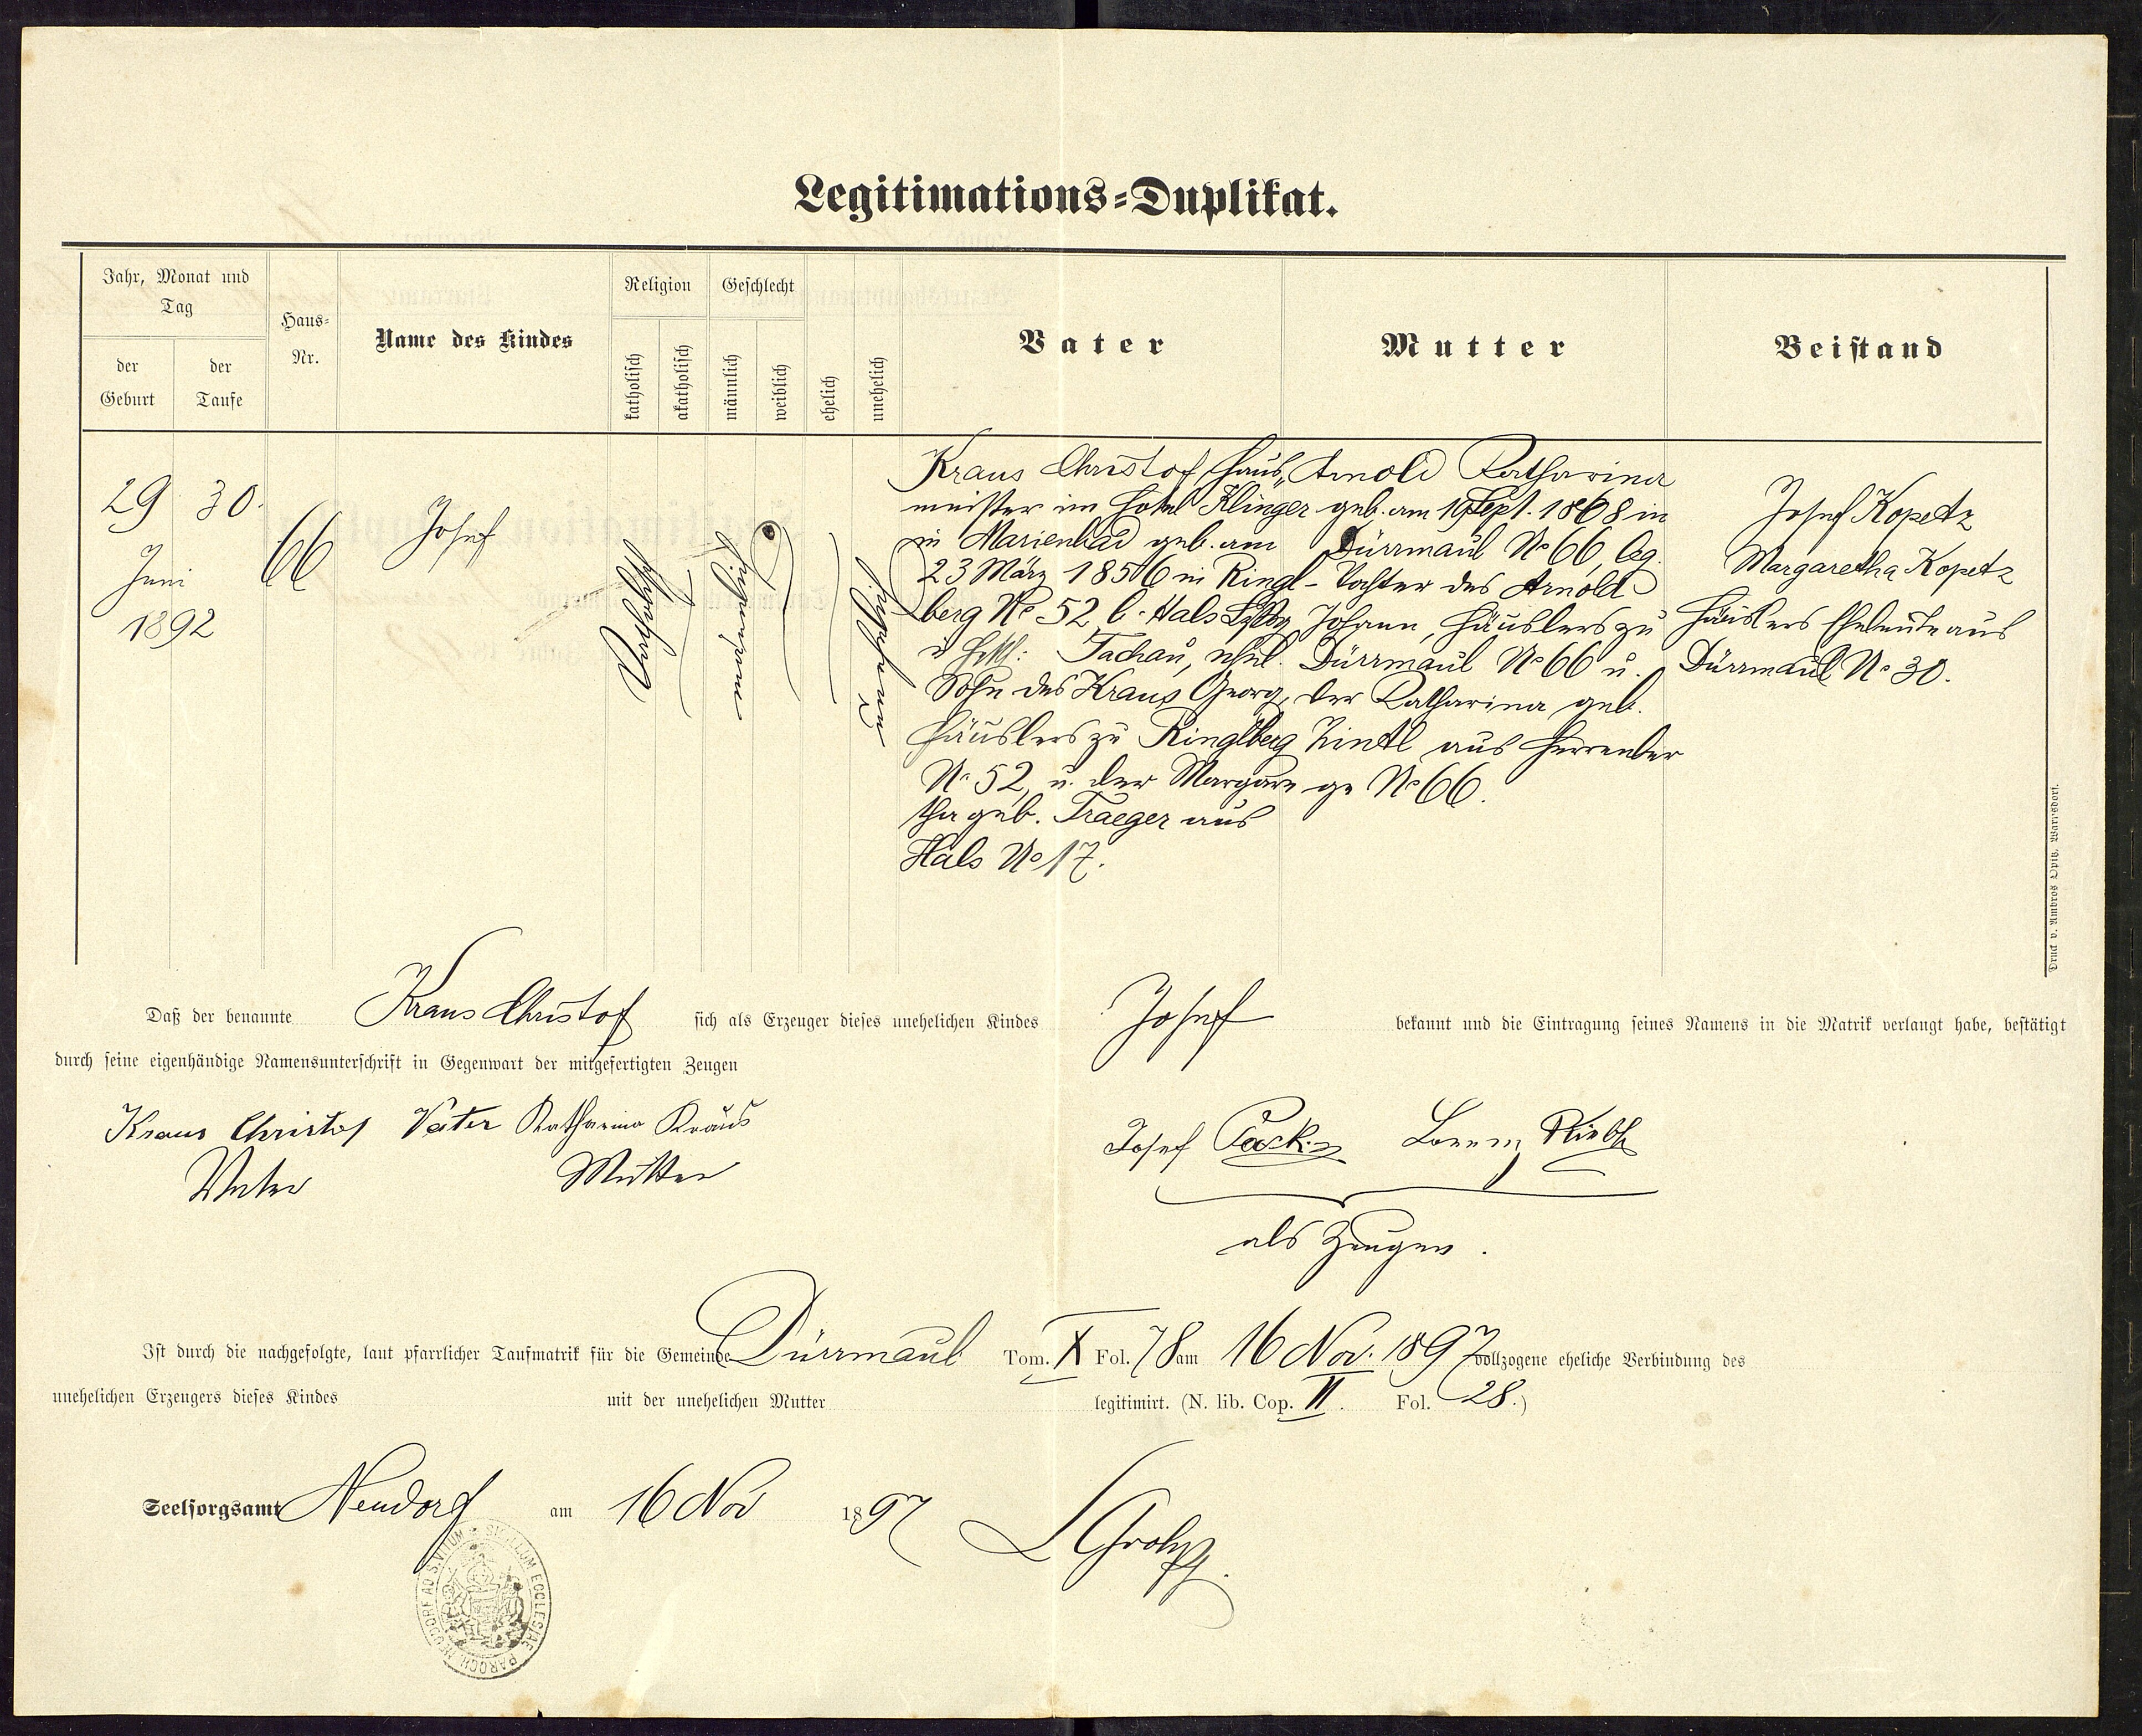 Legitimations-Duplikat.
Jahr, Monat und Tag
der Geburt
der Taufe
Haus-Nr.
Name des Kindes
Religion
katholisch
akatholisch
Geschlecht
männlich
weiblich
ehelich
unehelich
Vater
Mutter
Beistand
29 30.
Juni
1892
66
Josef
Katholisch
männlich
unehelich
Kraus Christof, Haus„
meister im Hotel Klinger
in Marienbad geb. am
23 März 1856 in Ringl-
berg No 52 b. Hals
Tachau, ehel.
Sohn des Kraus Georg,
Häuslers zu Ringlberg
No 52, u. der Margare
tha geb. Traeger aus
Hals No 17.
Arnold Katharina
geb. am 19 Sept. 1868 in
Dürrmaul No 66, leg.
Tochter des Arnold
Johann, Häuslers zu
Dürrmaul No 66 u.
der Katharina geb.
Zintl aus Herrenber
ge No 66.
Josef Kopetz
Margaretha Kopetz
Häuslers Eheleute aus
Dürrmaul No 30.
Druck v. Ambros Opitz, Warnsdorf.
Daß der benannte Kraus Christof sich als Erzeuger dieses unehelichen Kindes Josef bekannt und die Eintragung seines Namens in die Matrik verlangt habe, bestätigt
durch seine eigenhändige Namensunterschrift in Gegenwart der mitgefertigten Zeugen
Kraus Christof Vater Katharina Kraus
Vater Mutter
Josef
als Zeugen.
Ist durch die nachgefolgte, laut pfarrlicher Taufmatrik für die Gemeinde Dürrmaul Tom. X Fol. 78 am 16 Nov. 1897 vollzogene eheliche Verbindung des
unehelichen Erzeugers dieses Kindes mit der unehelichen Mutter legitimirt. (N. lib. Cop. II. Fol. 28.)
Seelsorgsamt Neudorf am 16 Nov 1897
SIGILLUM ECCLESIAE PAROCH. NEUDORF AD S. VITUM